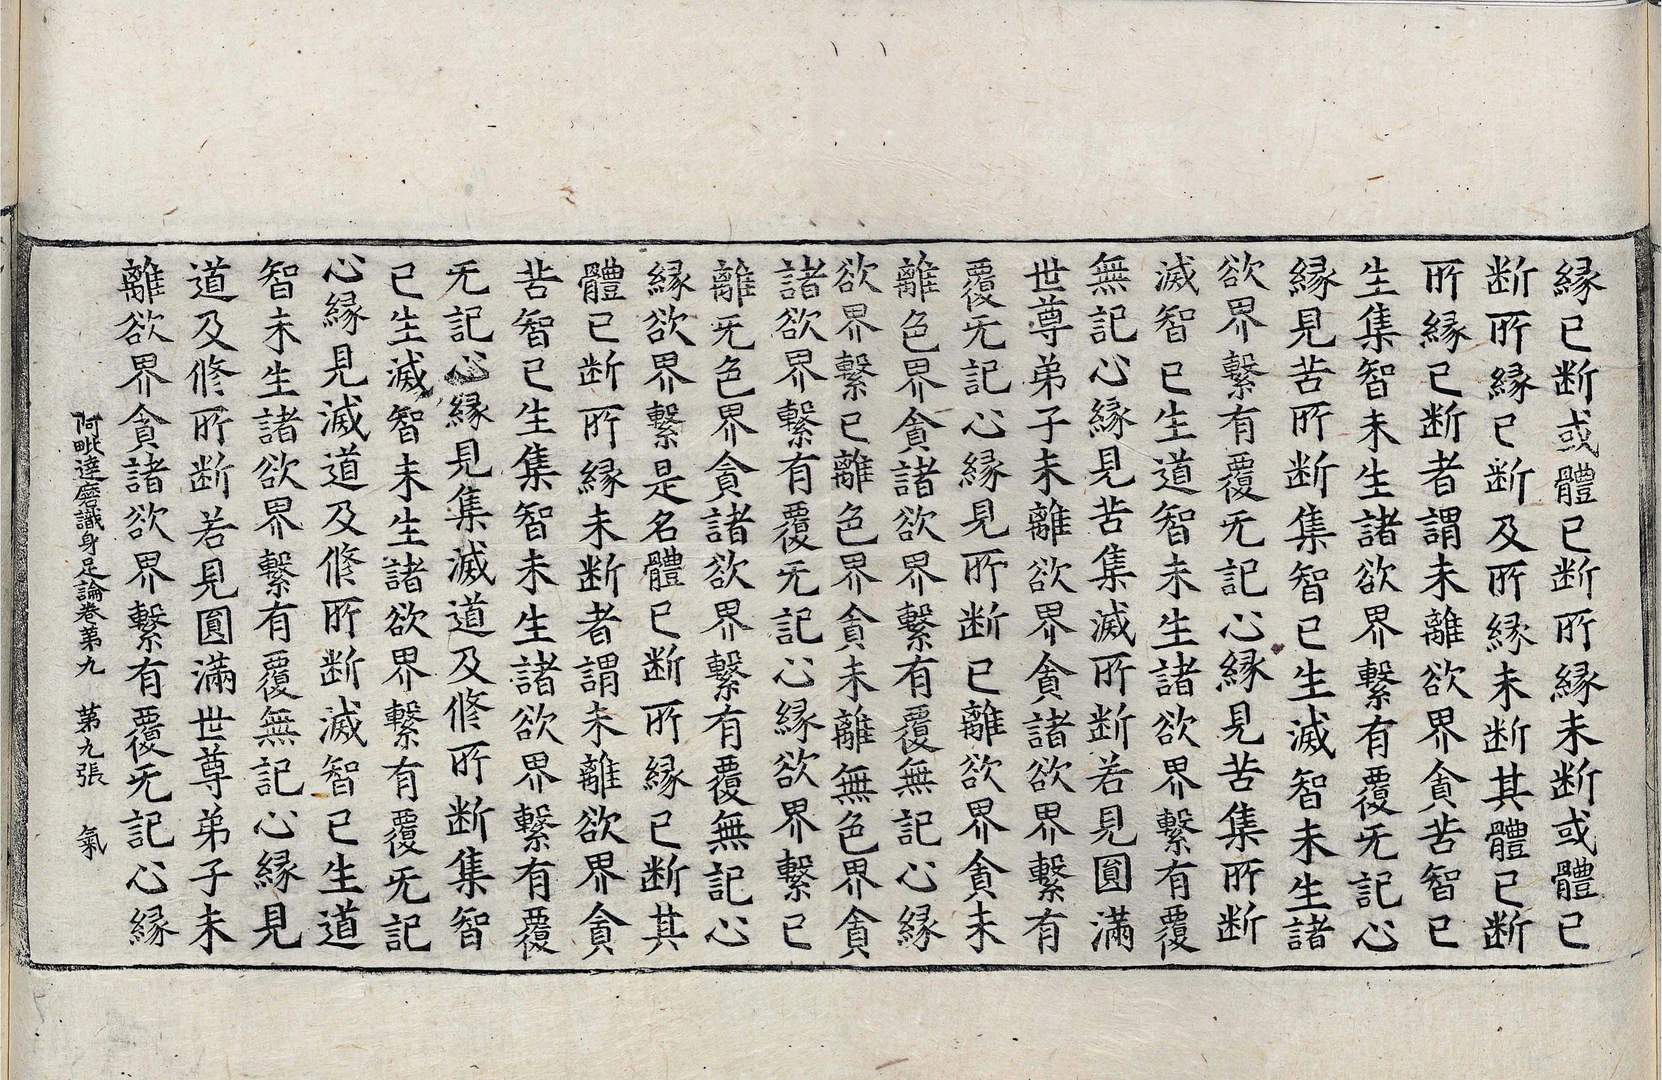 縁已断或體已断所縁未断或體已
断所縁已断及所縁未断其體已断
所縁已断者謂未離欲界貪苦智已
生集智未生諸欲界繋有覆无記心
縁見苦所断集智已生滅智未生諸
欲界繋有覆无記心縁見苦集所断
滅智已生道智未生諸欲界繋有覆
無記心縁見苦集滅所断若見圓滿
世尊弟子未離欲界貪諸欲界繋有
覆无記心縁見所断已離欲界貪未
離色界貪諸欲界繋有覆無記心縁
欲界繋已離色界貪未離無色界貪
諸欲界繋有覆无記心縁欲界繋已
離无色界貪諸欲界繋有覆無記心
縁欲界繋是名體已断所縁已断其
體已断所縁未断者謂未離欲界貪
苦智已生集智未生諸欲界繋有覆
无記心縁見集滅道及修所断集智
已生滅智未生諸欲界繋有覆无記
心縁見滅道及修所断滅智已生道
智未生諸欲界繋有覆無記心縁見
道及修所断若見圓滿世尊弟子未
離欲界貪諸欲界繋有覆无記心縁
阿毗達磨識身足論卷第九 第九張 氣